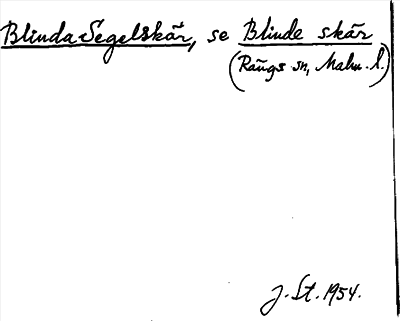 Blinda Segelskär, se Blinde skär
(Rängs sn, Malm. l.)
J. St. 1954.